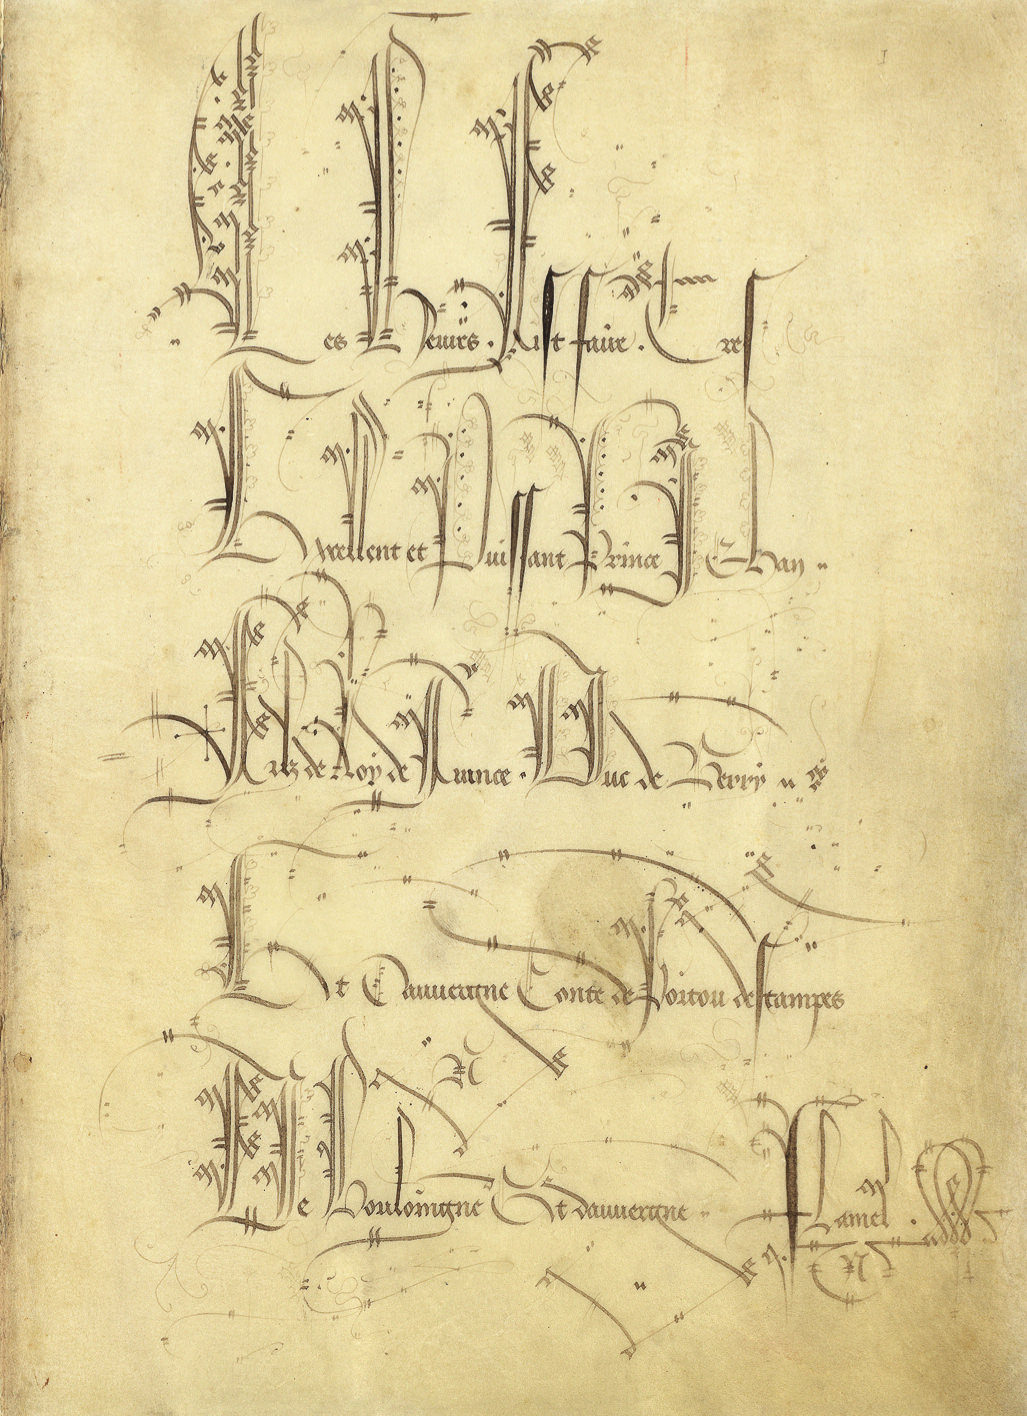 Ces heures fist faire Tres
Excellent et Puissant Prince Jehan
Filz de Roy de France. Duc de Berry
Et dauuergne Conte de Poitou destampes
De Bouloingne Et dauuergne Flamel